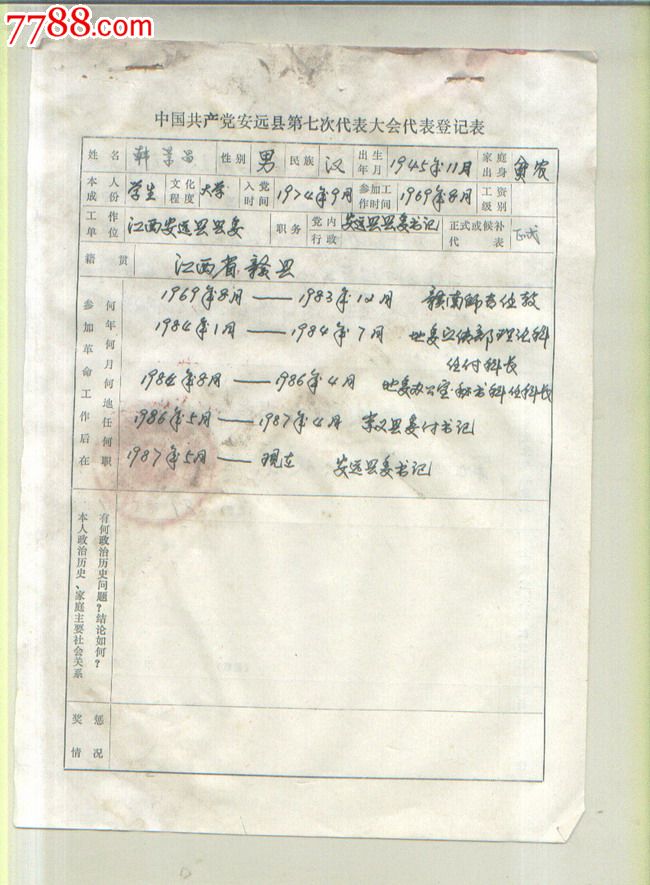 7788.com
中国收藏热线
中国共产党安远县第七次代表大会代表登记表
姓名 韩 昌 性别 男 民族 汉 出生年月 1945年11月 家庭出身 贫农
本人成份 学生 文化程度 大学 入党时间 1974年9月 参加工作时间 1969年8月 工资级别
工作单位 江西安远县县委 职务 党内行政 安远县县委书记 正式或候补代表 正式
籍贯 江西省赣县
何年何月何地任何职
参加革命工作后在
1969年8月——1983年12月 赣南师专任教
1984年1月——1984年7月 地委宣传部理论科
任付科长
1984年8月——1986年4月 地委办公室秘书科任科长
1986年5月——1987年4月 崇义县委付书记
1987年5月——现在 安远县委书记
有何政治历史问题？结论如何？
本人政治历史、家庭主要社会关系
奖惩情况